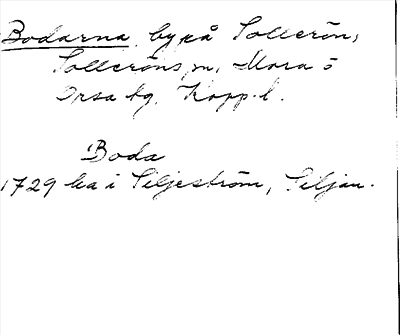 Bodarna, by på Sollerön,
Solleröns sn, Mora o
Orsa tg, Kopp. l.
Boda
1729 ka i Siljeström, Siljan.